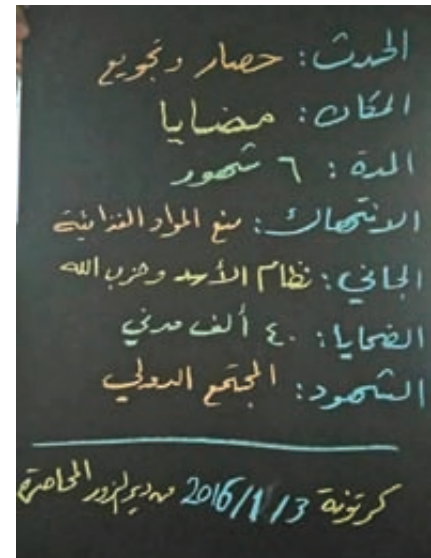 الحدث: حصار وتجويع
المكان: مضايا
المدة: ٦ شهور
الانتهاك: منع المواد الغذائية
الجاني: نظام الأسد وحزب الله
الضحايا: ٤٠ ألف مدني
الشهود: المجتمع الدولي
كرتونة 2016/1/3 من ديرالزور المحاصرة